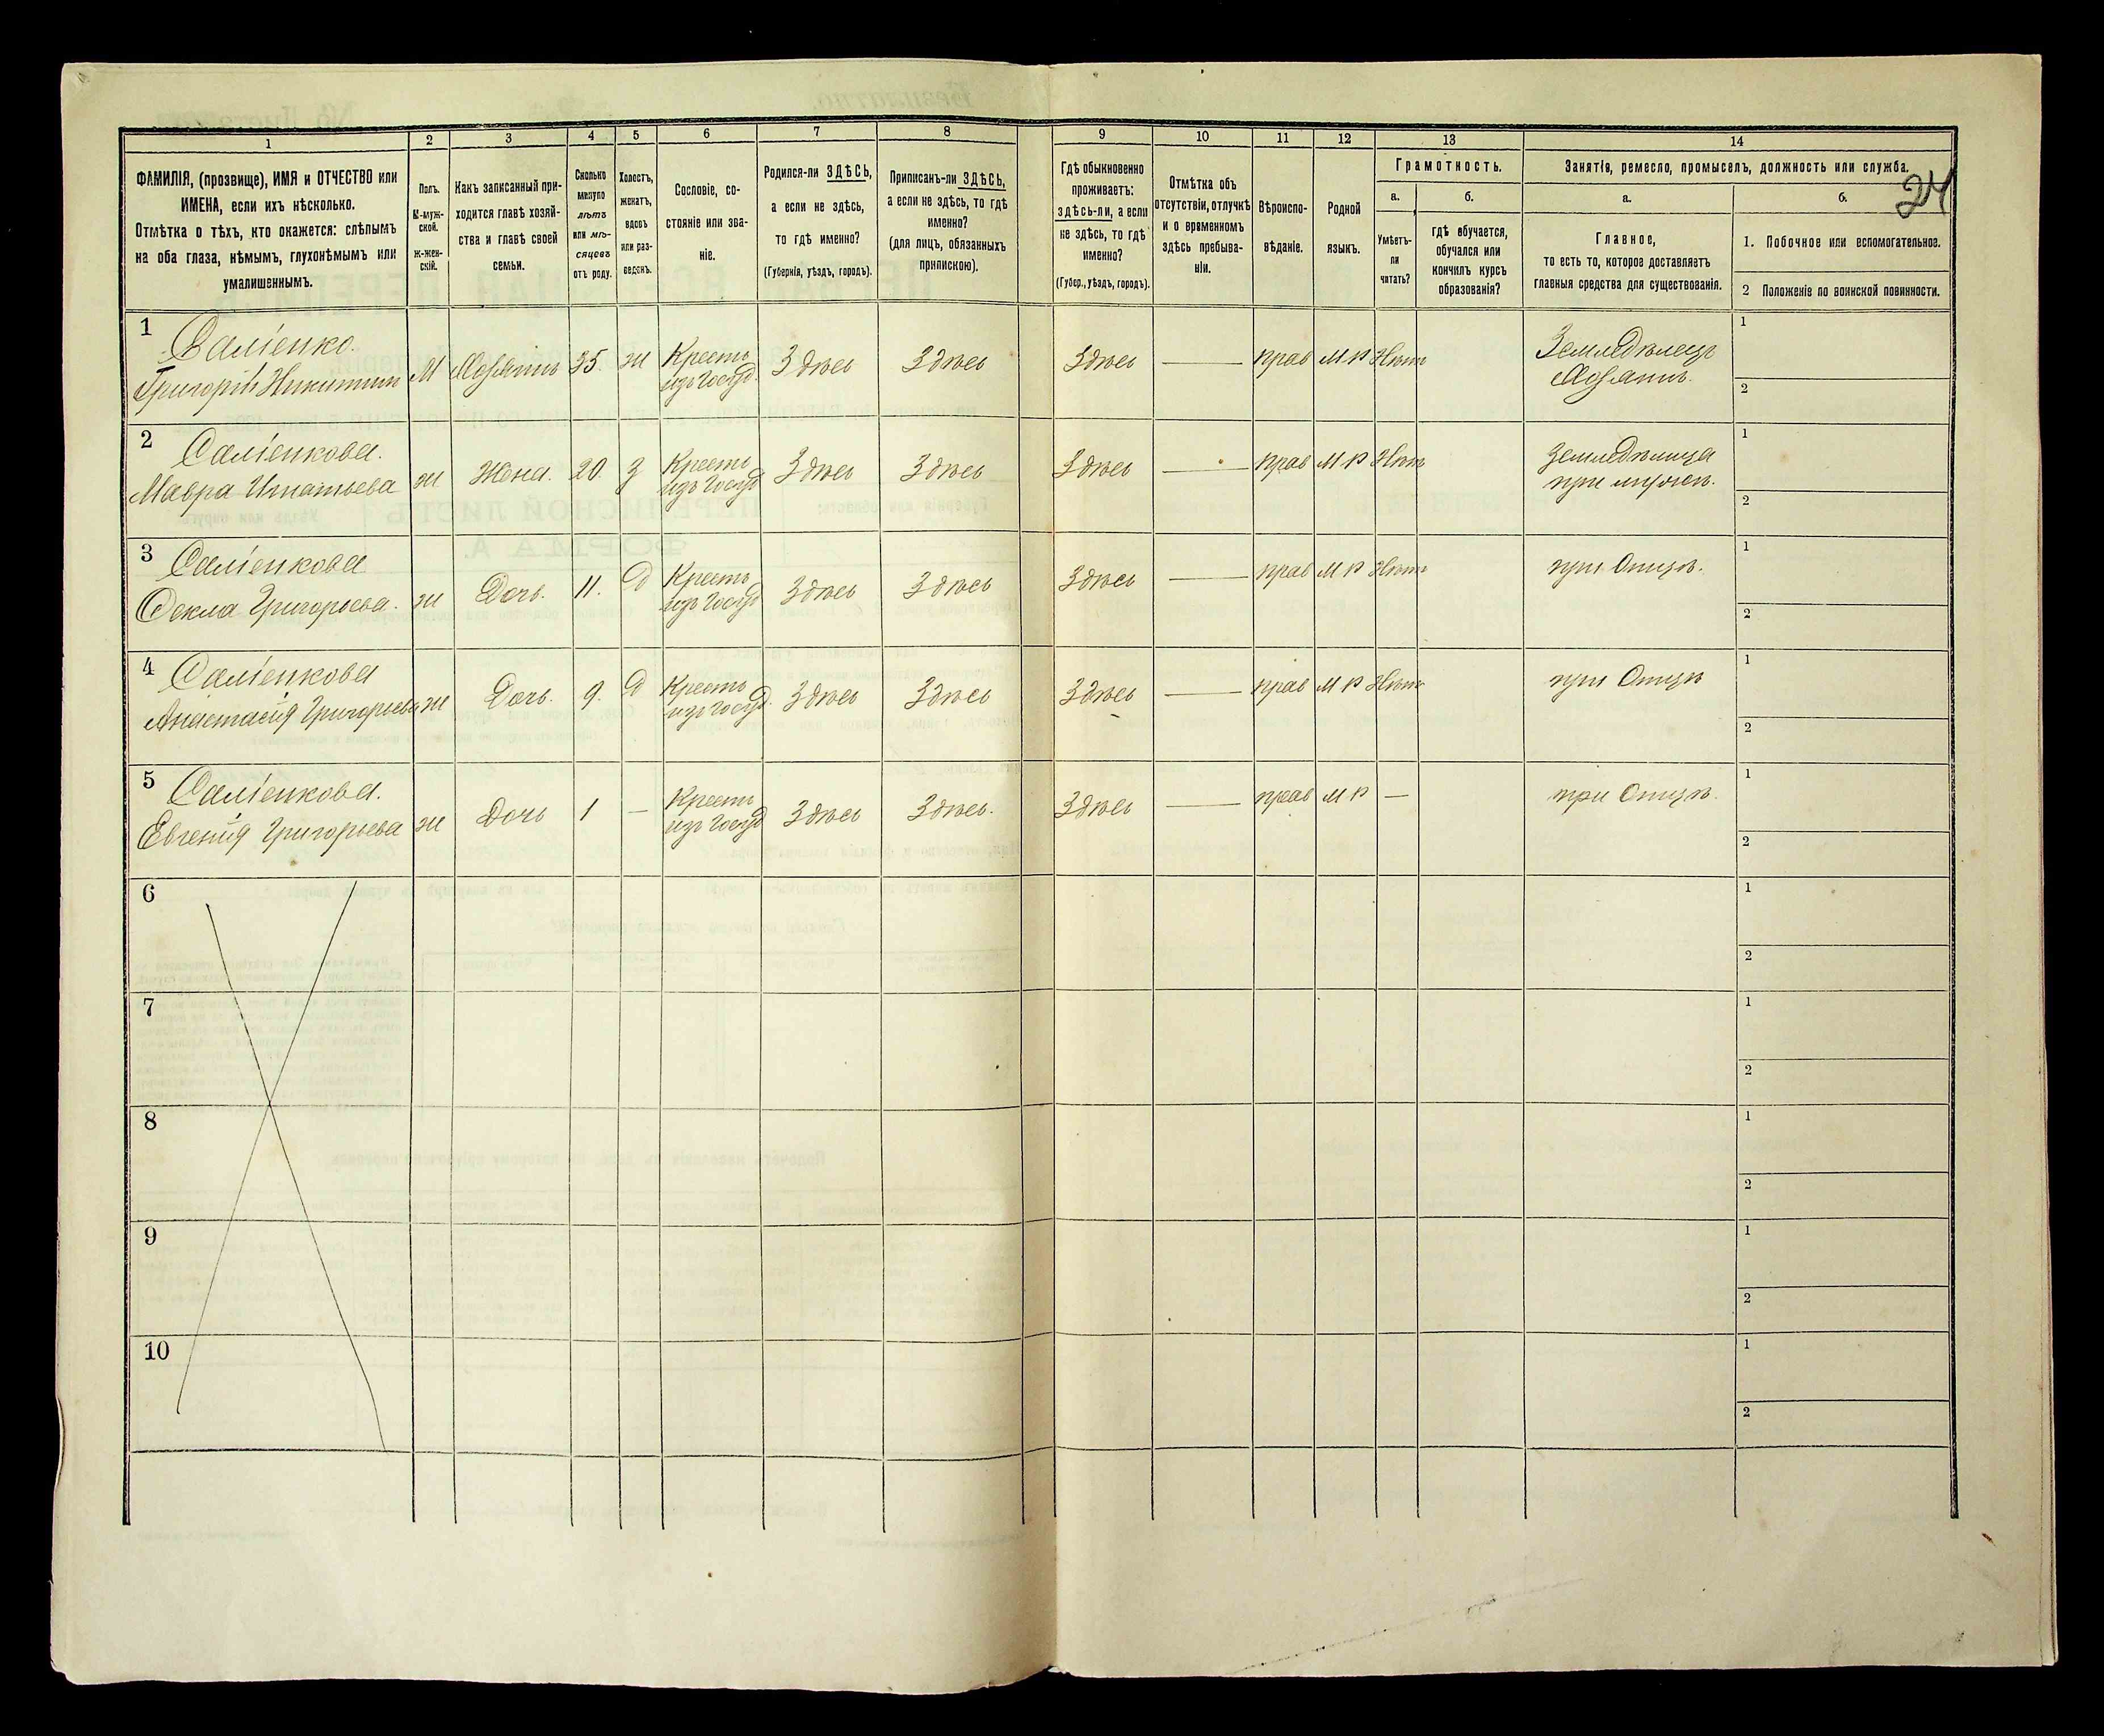 24
1 2 3 4 5 6 7 8 9 10 11 12 13 14
ФАМИЛІЯ, (прозвище), ИМЯ и ОТЧЕСТВО или
ИМЕНА, если ихъ нѣсколько.
Отмѣтка о тѣхъ, кто окажется: слѣпымъ
на оба глаза, нѣмымъ, глухонѣмымъ или
умалишеннымъ.
Полъ.
М-муж-
ской.
Ж-жен-
скій.
Какъ записанный при-
ходится главѣ хозяй-
ства и главѣ своей
семьи.
Сколько
минуло
лѣтъ
или мѣ-
сяцевъ
отъ роду.
Холостъ,
женатъ,
вдовъ
или раз-
веденъ.
Сословіе, со-
стояніе или зва-
ніе.
Родился-ли ЗДѢСЬ,
а если не здѣсь,
то гдѣ именно?
(Губернія, уѣздъ, городъ).
Приписанъ-ли ЗДѢСЬ,
а если не здѣсь, то гдѣ
именно?
(для лицъ, обязанныхъ
припискою).
Гдѣ обыкновенно
проживаетъ:
здѣсь-ли, а если
не здѣсь, то гдѣ
именно?
(Губер., уѣздъ, городъ).
Отмѣтка объ
отсутствіи, отлучкѣ
и о временномъ
здѣсь пребыва-
ніи.
Вѣроиспо-
вѣданіе.
Родной
языкъ.
Грамотность.
а.
Умѣетъ-
ли
читать?
б.
гдѣ обучается,
обучался или
кончилъ курсъ
образованія?
Занятія, ремесло, промыселъ, должность или служба.
а.
Главное,
то есть то, которое доставляетъ
главныя средства для существованія.
б.
1. Побочное или вспомогательное.
2 Положеніе по воинской повинности.
1
Григорій Никитинъ М 35. Кресть изъ Госуд. Здѣсь Здѣсь Здѣсь — прав м р Нѣтъ
Земледѣлецъ
1
2
2
Мавра Игнатьева ж Жена. 20. З Кресть изъ Госуд Здѣсь Здѣсь Здѣсь — прав м р Нѣтъ
1
2
3
Фекла Григорьева. ж Дочь. 11. Д Кресть изъ Госуд Здѣсь Здѣсь Здѣсь — прав м р Нѣтъ при Отцѣ.
1
2
4
Анастасія Григорьева ж Дочь. 9. Д Кресть изъ Госуд. Здѣсь Здѣсь Здѣсь — прав м р Нѣтъ при Отцѣ
1
2
5
Евгенія Григорьева ж Дочь 1 — Кресть изъ Госуд Здѣсь Здѣсь. Здѣсь — прав м р — при Отцѣ.
1
2
6
1
2
7
1
2
8
1
2
9
1
2
10
1
2